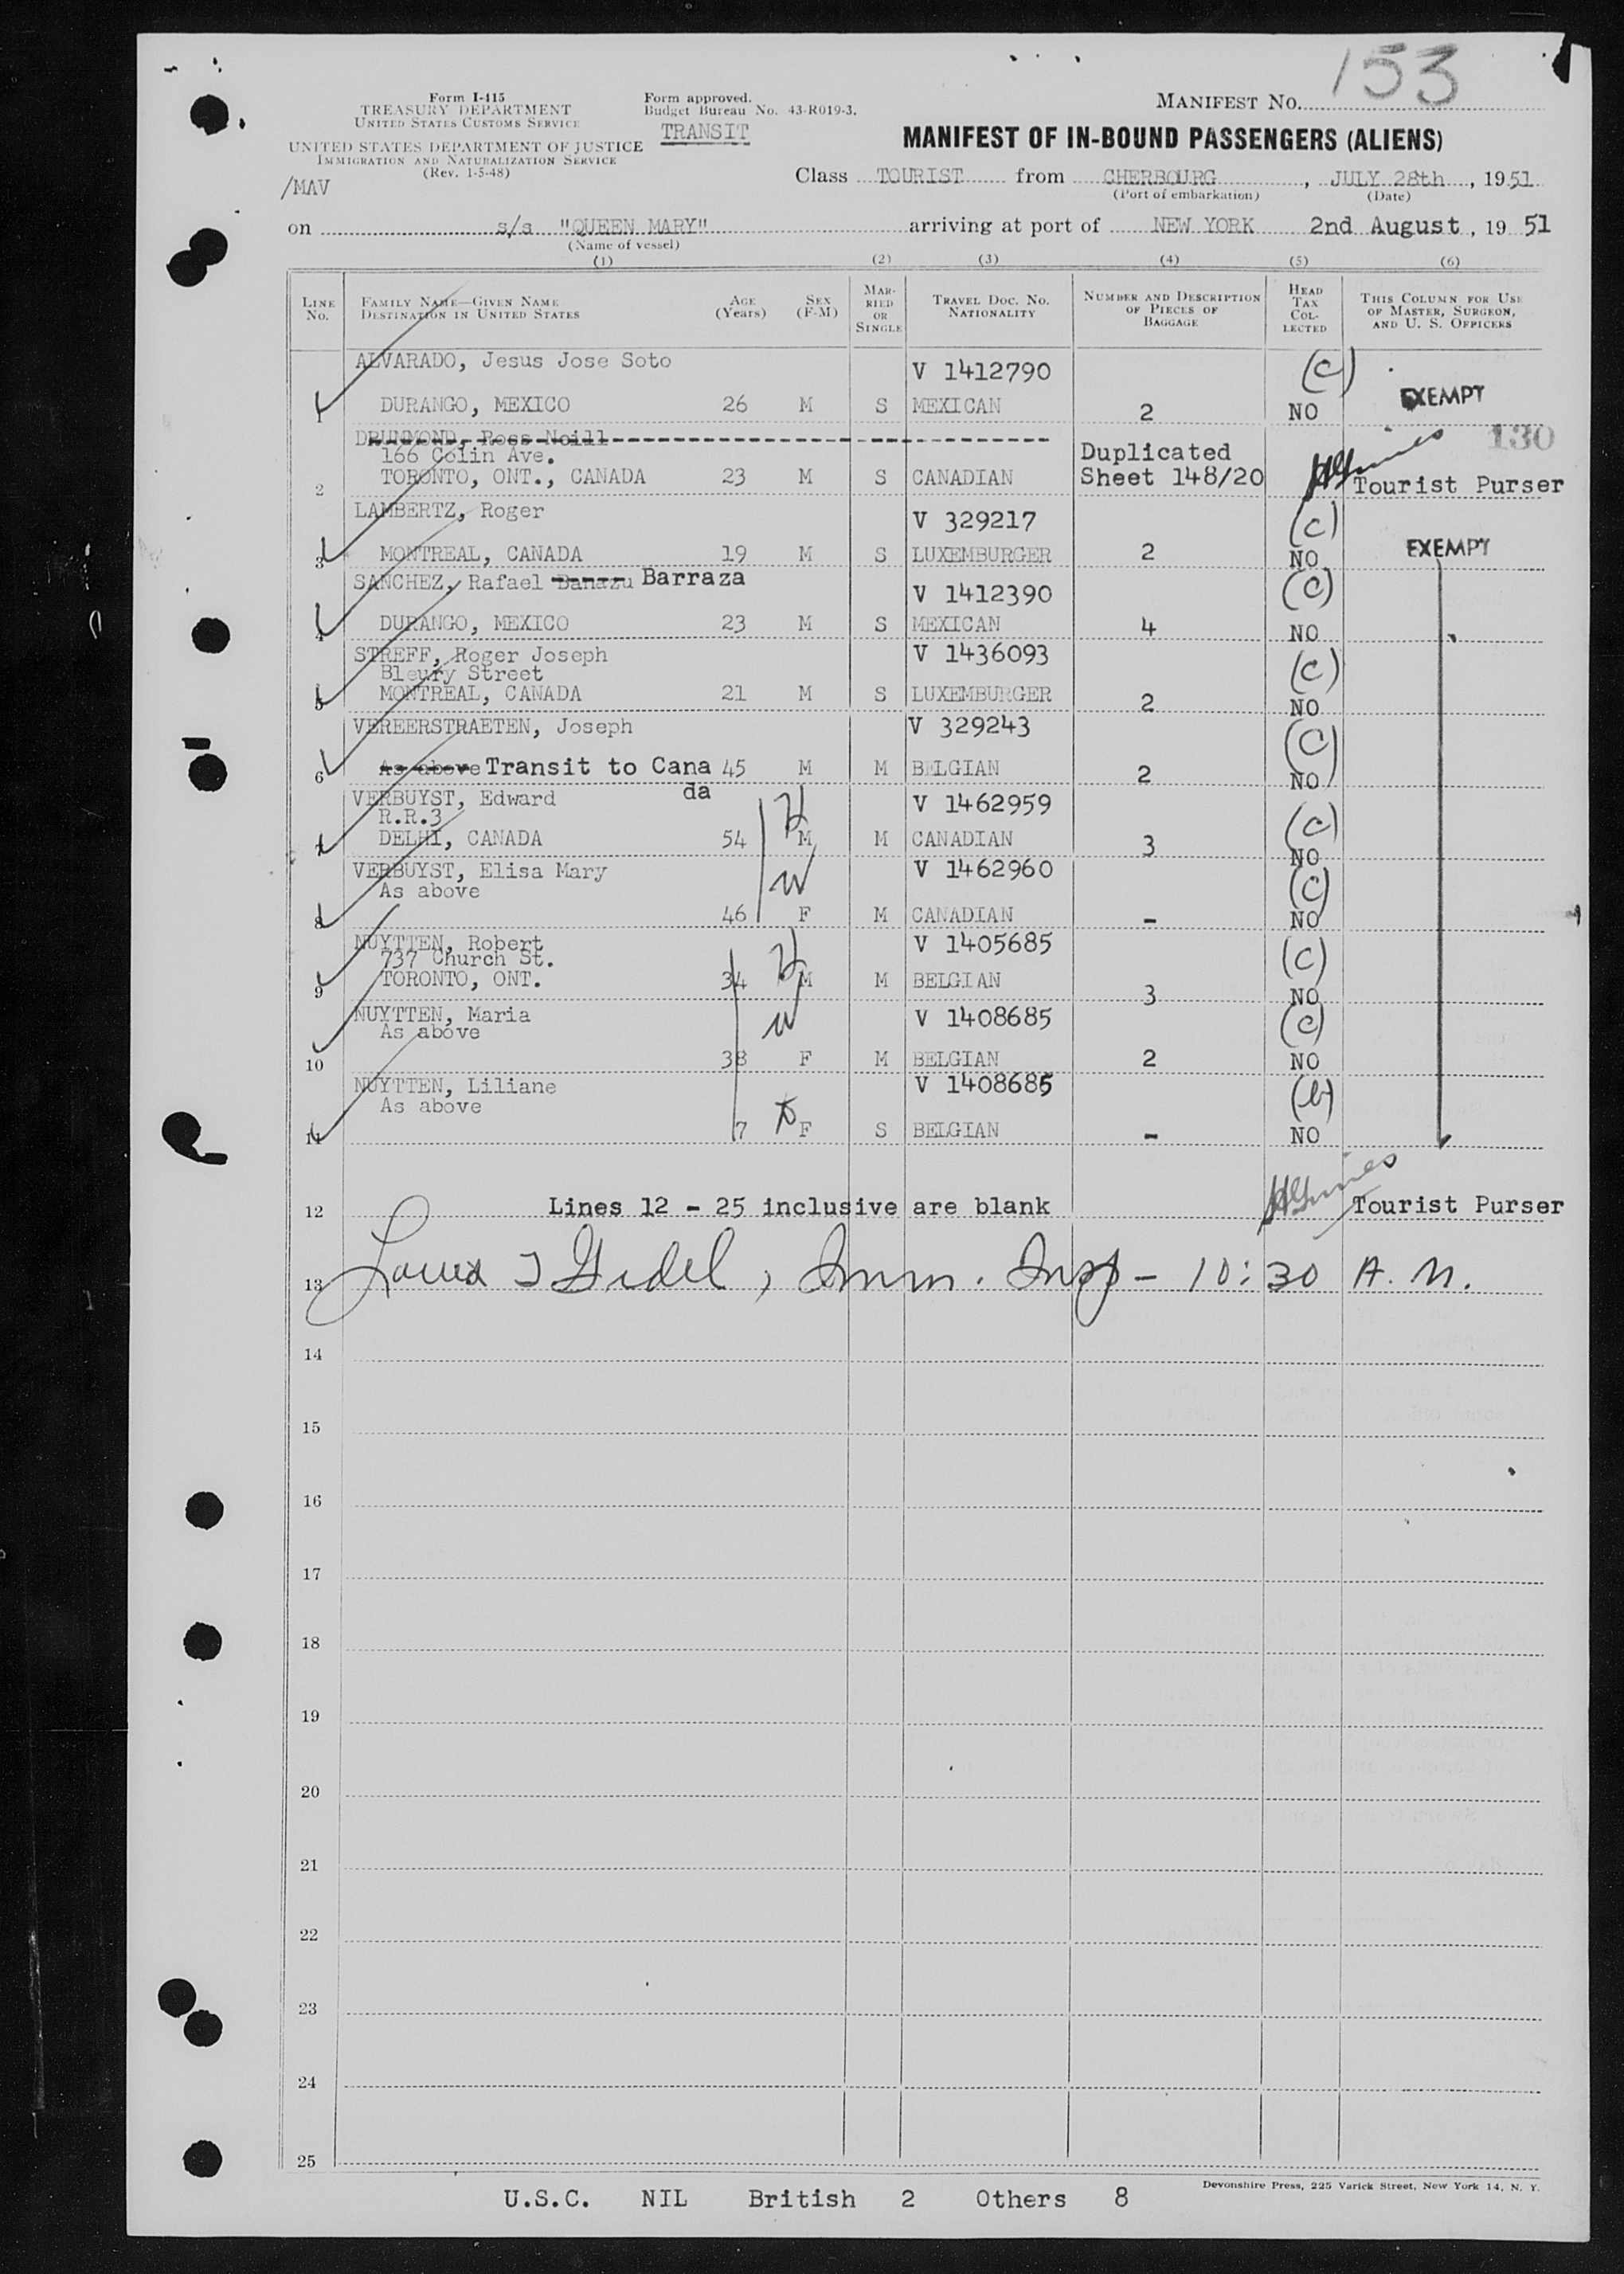 153
Form I-415
TREASURY DEPARTMENT
UNITED STATES CUSTOMS SERVICE
UNITED STATES DEPARTMENT OF JUSTICE
IMMIGRATION AND NATURALIZATION SERVICE
(Rev. 1-5-48)
/MAV
Form approved.
Budget Bureau No. 43-R019-3.
TRANSIT
MANIFEST NO.
MANIFEST OF IN-BOUND PASSENGERS (ALIENS)
Class TOURIST from CHERBOURG, JULY 28th, 1951
(Port of embarkation) (Date)
on s/s "QUEEN MARY" arriving at port of NEW YORK 2nd August, 19 51
(Name of vessel)
(1) (2) (3) (4) (5) (6)
LINE No.
FAMILY NAME—GIVEN NAME
DESTINATION IN UNITED STATES
AGE (Years)
SEX (F-M)
MARRIED OR SINGLE
TRAVEL DOC. NO. NATIONALITY
NUMBER AND DESCRIPTION OF PIECES OF BAGGAGE
HEAD TAX COLLECTED
THIS COLUMN FOR USE OF MASTER, SURGEON, AND U. S. OFFICERS
ALVARADO, Jesus Jose Soto V 1412790 (c)
1 DURANGO, MEXICO 26 M S MEXICAN 2 NO EXEMPT
DRUMMOND, Ross Neill 130
166 Colin Ave. Duplicated
2 TORONTO, ONT., CANADA 23 M S CANADIAN Sheet 148/20 Tourist Purser
LAMBERTZ, Roger V 329217 (c)
3 MONTREAL, CANADA 19 M S LUXEMBURGER 2 NO EXEMPT
SANCHEZ, Rafael Barraza V 1412390 (c)
4 DURANGO, MEXICO 23 M S MEXICAN 4 NO
STREFF, Roger Joseph V 1436093 (c)
Bleury Street
5 MONTREAL, CANADA 21 M S LUXEMBURGER 2 NO
VEREERSTRAETEN, Joseph V 329243 (c)
6 As above Transit to Cana 45 M M BELGIAN 2 NO
da
VERBUYST, Edward V 1462959 (c)
R.R.3 H
7 DELHI, CANADA 54 M M CANADIAN 3 NO
VERBUYST, Elisa Mary V 1462960 (c)
As above W
8 46 F M CANADIAN - NO
NUYTTEN, Robert V 1405685 (c)
737 Church St. H
9 TORONTO, ONT. 34 M M BELGIAN 3 NO
NUYTTEN, Maria V 1408685 (c)
As above W
10 38 F M BELGIAN 2 NO
NUYTTEN, Liliane V 1408685 (b)
As above
11 7 F S BELGIAN - NO
12 Lines 12 - 25 inclusive are blank Tourist Purser
13 Imm. Insp - 10:30 A.M.
14
15
16
17
18
19
20
21
22
23
24
25
Devonshire Press, 225 Varick Street, New York 14, N. Y.
U.S.C. NIL British 2 Others 8